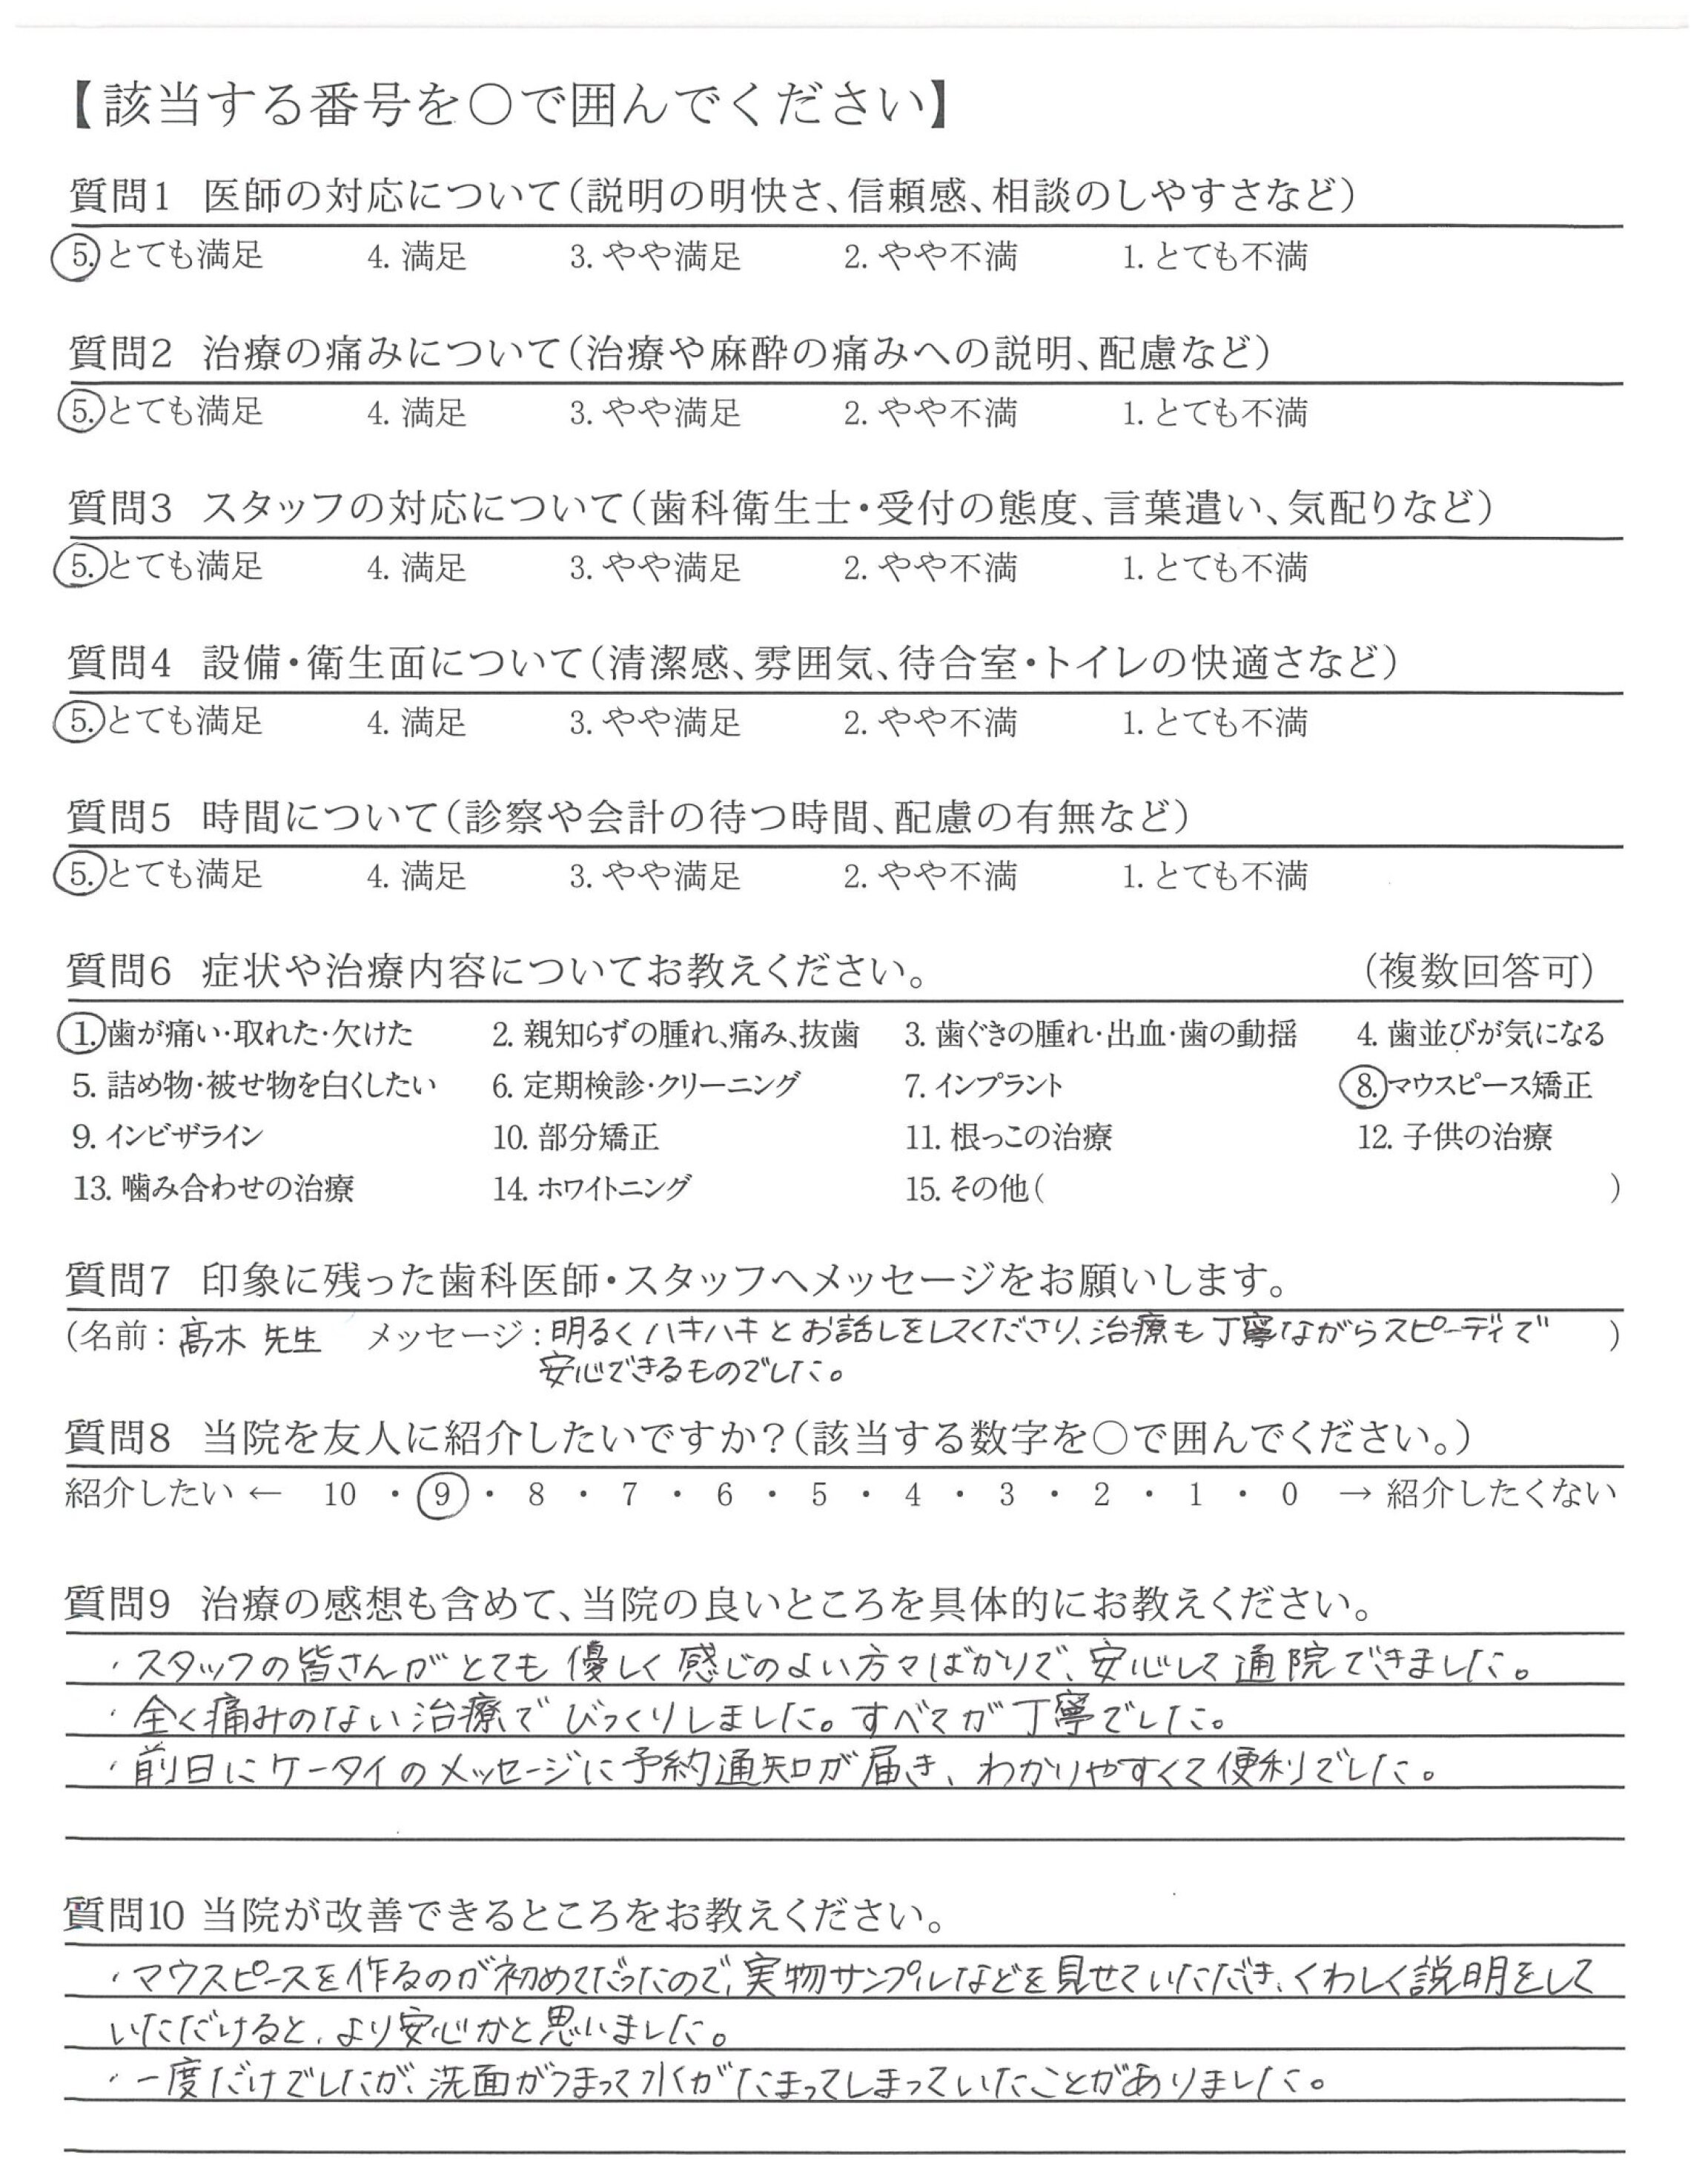 【該当する番号を○で囲んでください】
質問1 医師の対応について（説明の明快さ、信頼感、相談のしやすさなど）
5. とても満足 4. 満足 3. やや満足 2. やや不満 1. とても不満
質問2 治療の痛みについて（治療や麻酔の痛みへの説明、配慮など）
5. とても満足 4. 満足 3. やや満足 2. やや不満 1. とても不満
質問3 スタッフの対応について（歯科衛生士・受付の態度、言葉遣い、気配りなど）
5. とても満足 4. 満足 3. やや満足 2. やや不満 1. とても不満
質問4 設備・衛生面について（清潔感、雰囲気、待合室・トイレの快適さなど）
5. とても満足 4. 満足 3. やや満足 2. やや不満 1. とても不満
質問5 時間について（診察や会計の待つ時間、配慮の有無など）
5. とても満足 4. 満足 3. やや満足 2. やや不満 1. とても不満
質問6 症状や治療内容についてお教えください。 （複数回答可）
1. 歯が痛い・取れた・欠けた 2. 親知らずの腫れ、痛み、抜歯 3. 歯ぐきの腫れ・出血・歯の動揺 4. 歯並びが気になる
5. 詰め物・被せ物を白くしたい 6. 定期検診・クリーニング 7. インプラント 8. マウスピース矯正
9. インビザライン 10. 部分矯正 11. 根っこの治療 12. 子供の治療
13. 噛み合わせの治療 14. ホワイトニング 15. その他（ ）
質問7 印象に残った歯科医師・スタッフへメッセージをお願いします。
（名前：髙木 先生 メッセージ：明るくハキハキとお話しをしてくださり、治療も丁寧ながらスピーディで ）
安心できるものでした。
質問8 当院を友人に紹介したいですか？（該当する数字を○で囲んでください。）
紹介したい ← 10 ・ 9 ・ 8 ・ 7 ・ 6 ・ 5 ・ 4 ・ 3 ・ 2 ・ 1 ・ 0 → 紹介したくない
質問9 治療の感想も含めて、当院の良いところを具体的にお教えください。
・スタッフの皆さんがとても優しく感じのよい方々ばかりで、安心して通院できました。
・全く痛みのない治療でびっくりしました。すべてが丁寧でした。
・前日にケータイのメッセージに予約通知が届き、わかりやすくて便利でした。
質問10 当院が改善できるところをお教えください。
・マウスピースを作るのが初めてだったので、実物サンプルなどを見せていただき、くわしく説明をして
いただけると、より安心かと思いました。
・一度だけでしたが、洗面がつまって水がたまってしまっていたことがありました。